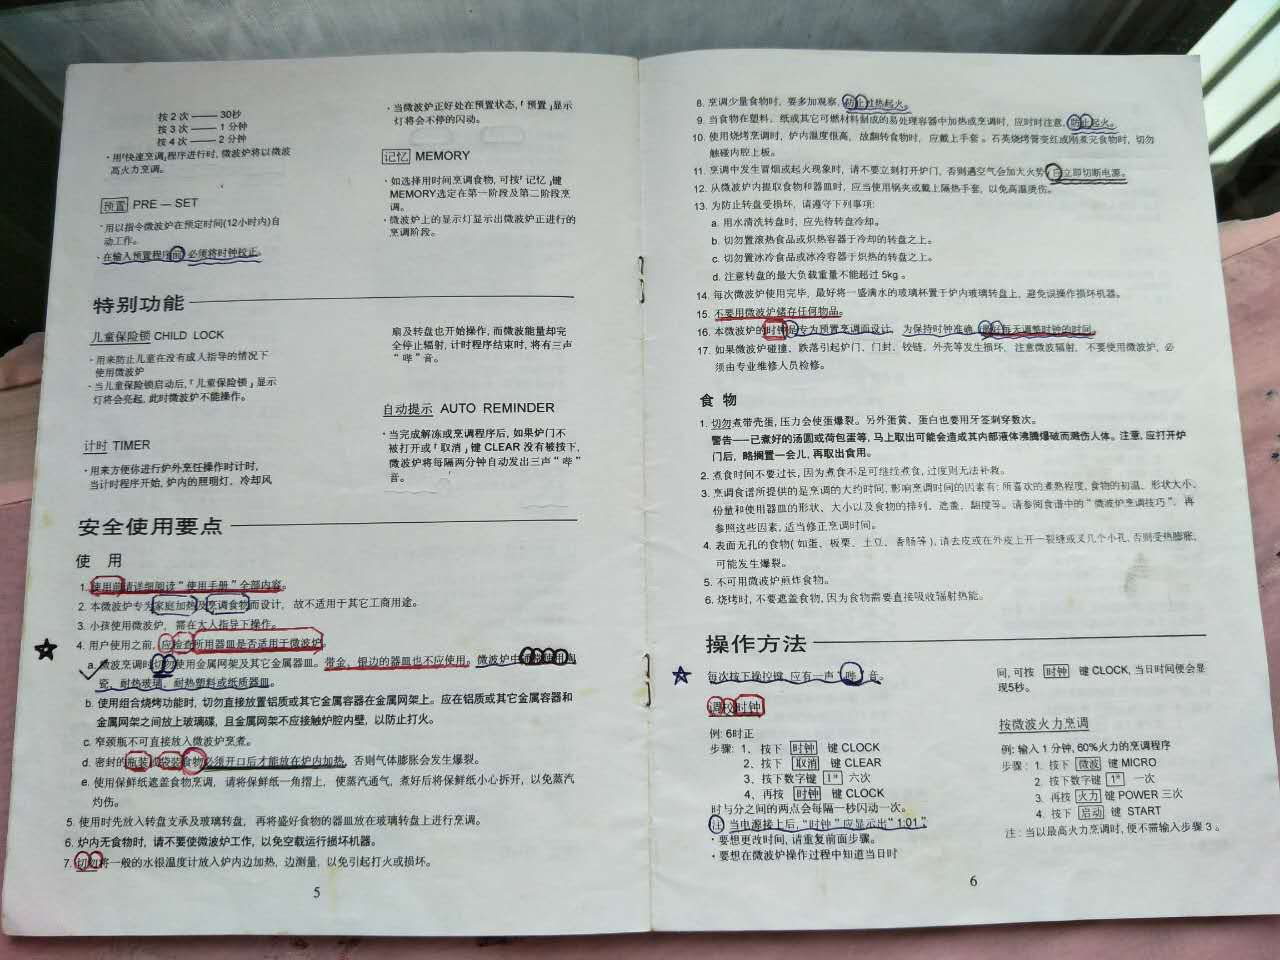 按2次 —— 30秒
按3次 —— 1分钟
按4次 —— 2分钟
· 用「快速烹调」程序进行时, 微波炉将以微波
高火力烹调。
预置 PRE — SET
· 用以指令微波炉在预定时间(12小时内)自
动工作。
· 在输入预置程序前 必须将时钟校正。
· 当微波炉正好处在预置状态,「预置」显示
灯将会不停的闪动。
记忆 MEMORY
· 如选择用时间烹调食物, 可按「记忆」键
MEMORY选定在第一阶段及第二阶段烹
调。
· 微波炉上的显示灯显示出微波炉正进行的
烹调阶段。
特别功能
儿童保险锁 CHILD LOCK
· 用来防止儿童在没有成人指导的情况下
使用微波炉
· 当儿童保险锁启动后,「儿童保险锁」显示
灯将会亮起, 此时微波炉不能操作。
计时 TIMER
· 用来方便你进行炉外烹任操作时计时,
当计时程序开始, 炉内的照明灯、冷却风
扇及转盘也开始操作, 而微波能量却完
全停止辐射, 计时程序结束时, 将有三声
“哔”音。
自动提示 AUTO REMINDER
· 当完成解冻或烹调程序后, 如果炉门不
被打开或「取消」键 CLEAR 没有被按下,
微波炉将每隔两分钟自动发出三声“哔”
音。
安全使用要点
使 用
1. 使用前请详细阅读“使用手册”全部内容。
2. 本微波炉专为家庭加热及烹调食物而设计, 故不适用于其它工商用途。
3. 小孩使用微波炉, 需在大人指导下操作。
4. 用户使用之前, 应检查所用器皿是否适用于微波炉。
a. 微波烹调时切勿使用金属网架及其它金属器皿。带金、银边的器皿也不应使用。微波炉中
瓷、耐热玻璃、耐热塑料或纸质器皿。
b. 使用组合烧烤功能时, 切勿直接放置铝质或其它金属容器在金属网架上。应在铝质或其它金属容器和
金属网架之间放上玻璃碟, 且金属网架不应接触炉腔内壁, 以防止打火。
c. 窄颈瓶不可直接放入微波炉烹煮。
d. 密封的瓶装或袋装食物必须开口后才能放在炉内加热, 否则气体膨胀会发生爆裂。
e. 使用保鲜纸遮盖食物烹调, 请将保鲜纸一角摺上, 使蒸汽通气, 煮好后将保鲜纸小心拆开, 以免蒸汽
灼伤。
5. 使用时先放入转盘支承及玻璃转盘, 再将盛好食物的器皿放在玻璃转盘上进行烹调。
6. 炉内无食物时, 请不要使微波炉工作, 以免空载运行损坏机器。
7. 切勿将一般的水银温度计放入炉内边加热, 边测量, 以免引起打火或损坏。
5
8. 烹调少量食物时, 要多加观察, 防止过热起火。
9. 当食物在塑料、纸或其它可燃材料制成的易处理容器中加热或烹调时, 应时时注意, 防止起火。
10. 使用烧烤烹调时, 炉内温度很高, 故翻转食物时, 应戴上手套。石英烧烤管变红或刚煮完食物时, 切勿
触碰内腔上板。
11. 烹调中发生冒烟或起火现象时, 请不要立刻打开炉门, 否则遇空气会加大火势, 立即切断电源。
12. 从微波炉内提取食物和器皿时, 应当使用锅夹或戴上隔热手套, 以免高温烫伤。
13. 为防止转盘受损坏, 请遵守下列事项:
a. 用水清洗转盘时, 应先待转盘冷却。
b. 切勿置滚热食品或炽热容器于冷却的转盘之上。
c. 切勿置冰冷食品或冰冷容器于炽热的转盘之上。
d. 注意转盘的最大负载重量不能超过5kg。
14. 每次微波炉使用完毕, 最好将一盛满水的玻璃杯置于炉内玻璃转盘上, 避免误操作损坏机器。
15. 不要用微波炉储存任何物品。
16. 本微波炉的时钟是专为预置烹调而设计, 为保持时钟准确, 最好每天调整时钟的时间。
17. 如果微波炉碰撞、跌落引起炉门、门封、铰链、外壳等发生损坏, 注意微波辐射, 不要使用微波炉, 必
须由专业维修人员检修。
食 物
1. 切勿煮带壳蛋, 压力会使蛋爆裂。另外蛋黄、蛋白也要用牙签刺穿数次。
警告——已煮好的汤圆或荷包蛋等, 马上取出可能会造成其内部液体沸腾爆破而溅伤人体。注意, 应打开炉
门后, 略搁置一会儿, 再取出食用。
2. 煮食时间不要过长, 因为煮食不足可继续煮食, 过度则无法补救。
3. 烹调食谱所提供的是烹调的大约时间, 影响烹调时间的因素有: 所喜欢的煮熟程度, 食物的初温、形状大小、
份量和使用器皿的形状、大小以及食物的排列、遮盖、翻搅等。请参阅食谱中的“微波炉烹调技巧”, 再
参照这些因素, 适当修正烹调时间。
4. 表面无孔的食物(如蛋、板栗、土豆、香肠等), 请去皮或在外皮上开一裂缝或叉几个小孔, 否则受热膨胀,
可能发生爆裂。
5. 不可用微波炉煎炸食物。
6. 烧烤时, 不要遮盖食物, 因为食物需要直接吸收辐射热能。
操作方法
每次按下操控键, 应有一声“哔”音。
调校时钟
例: 6时正
步骤: 1、按下 时钟 键 CLOCK
2、按下 取消 键 CLEAR
3、按下数字键 1* 六次
4、再按 时钟 键 CLOCK
时与分之间的两点会每隔一秒闪动一次。
注: 当电源接上后, “时钟”应显示出“1:01”
· 要想更改时间, 请重复前面步骤。
· 要想在微波炉操作过程中知道当日时
间, 可按 时钟 键 CLOCK, 当日时间便会显
现5秒。
按微波火力烹调
例: 输入1分钟, 60%火力的烹调程序
步骤: 1. 按下 微波 键 MICRO
2. 按下数字键 1* 一次
3. 再按 火力 键 POWER 三次
4. 按下 启动 键 START
注: 当以最高火力烹调时, 便不需输入步骤3。
6